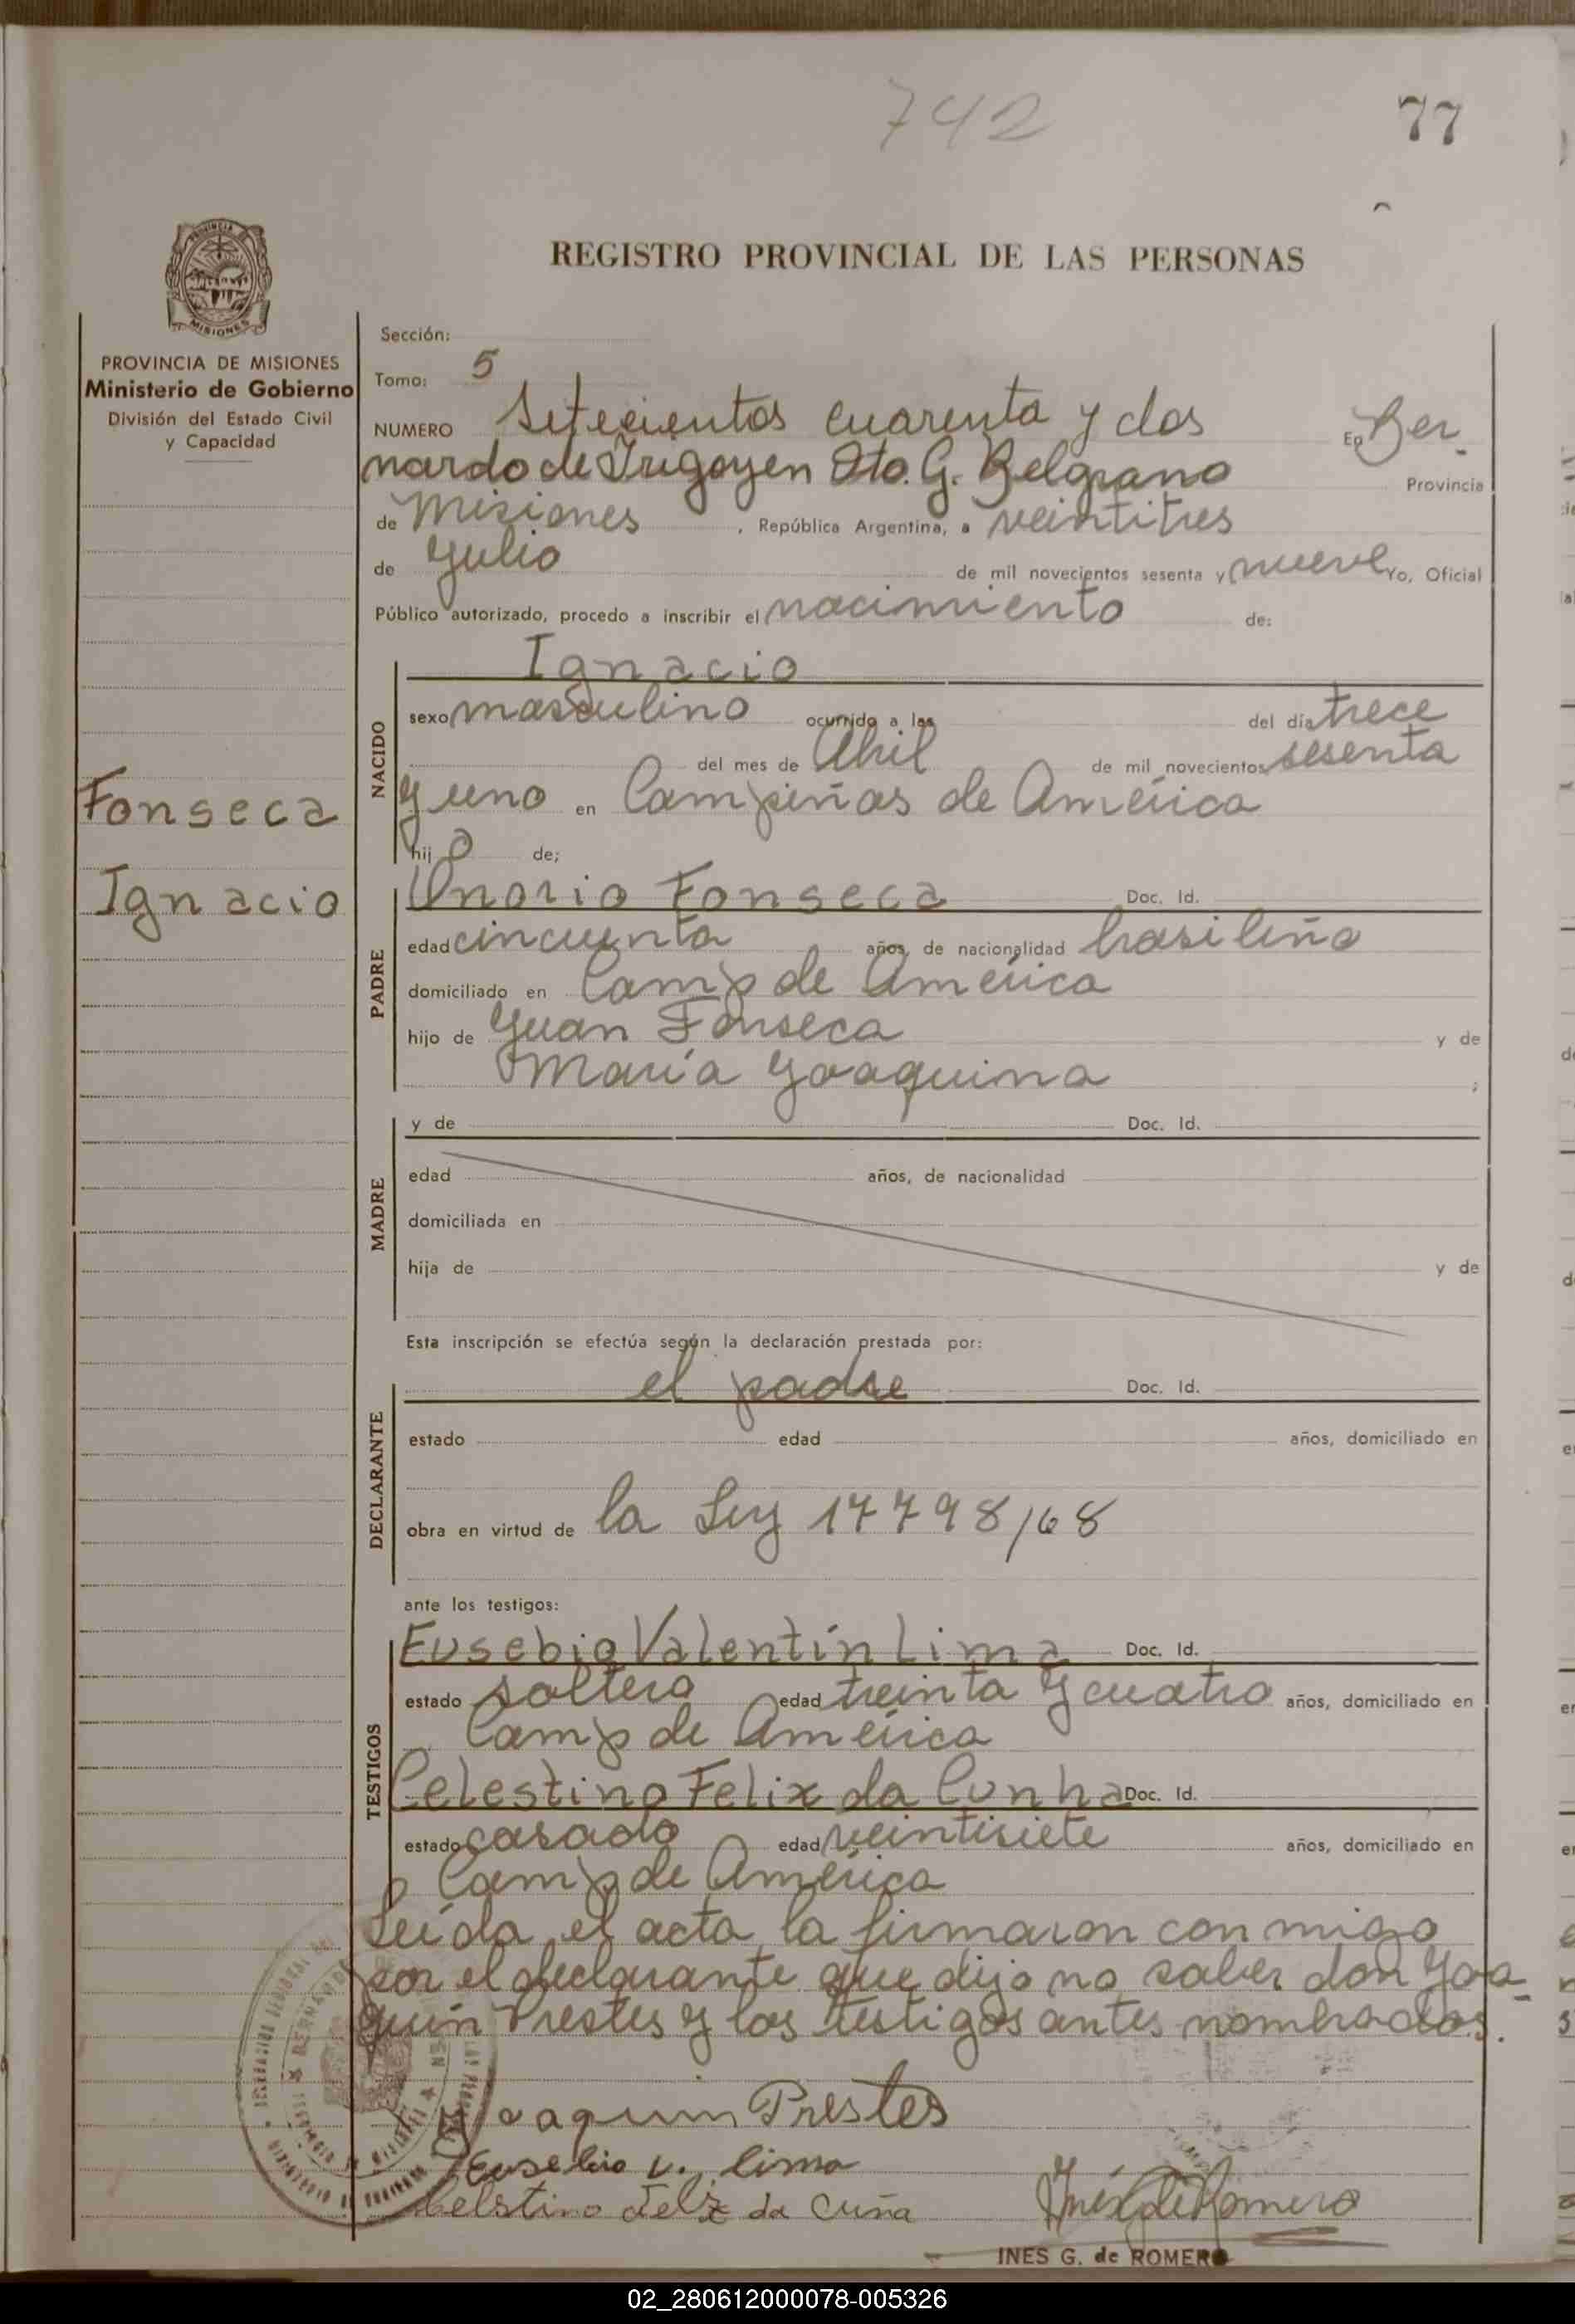 742
77
REGISTRO PROVINCIAL DE LAS PERSONAS
MISIONES
PROVINCIA DE MISIONES
Ministerio de Gobierno
División del Estado Civil
y Capacidad
Fonseca
Ignacio
Sección:
Tomo: 5
NUMERO Setecientos cuarenta y dos En Ber-
nardo de Irigoyen Dto. G. Belgrano Provincia
de Misiones, República Argentina, a veintitres
de Julio de mil novecientos sesenta y nueve Yo, Oficial
Público autorizado, procedo a inscribir el nacimiento de:
NACIDO
Ignacio
sexo masculino ocurrido a las del día trece
del mes de Abril de mil novecientos sesenta
y uno en Campiñas de América
hijo de;
PADRE
Onorio Fonseca Doc. Id.
edad cincuenta años, de nacionalidad brasileña
domiciliado en Camp de América
hijo de Juan Fonseca y de
María Joaquina ;
MADRE
y de Doc. Id.
edad años, de nacionalidad
domiciliada en
hija de y de
Esta inscripción se efectúa según la declaración prestada por:
DECLARANTE
el padre Doc. Id.
estado edad años, domiciliado en
obra en virtud de la Ley 17798/68
ante los testigos:
TESTIGOS
Eusebio Valentín Lima Doc. Id.
estado soltero edad treinta y cuatro años, domiciliado en
Camp de América
Celestino Felix da Cunha Doc. Id.
estado casado edad veintisiete años, domiciliado en
Camp de América
Leída el acta, la firmaron conmigo
por el declarante que dijo no saber don Joa-
quín Prestes y los testigos antes nombrados.
Joaquin Prestes
Eusebio V. Lima
Celstino Feliz da Cuña
INES G. de ROMERO
02_280612000078-005326